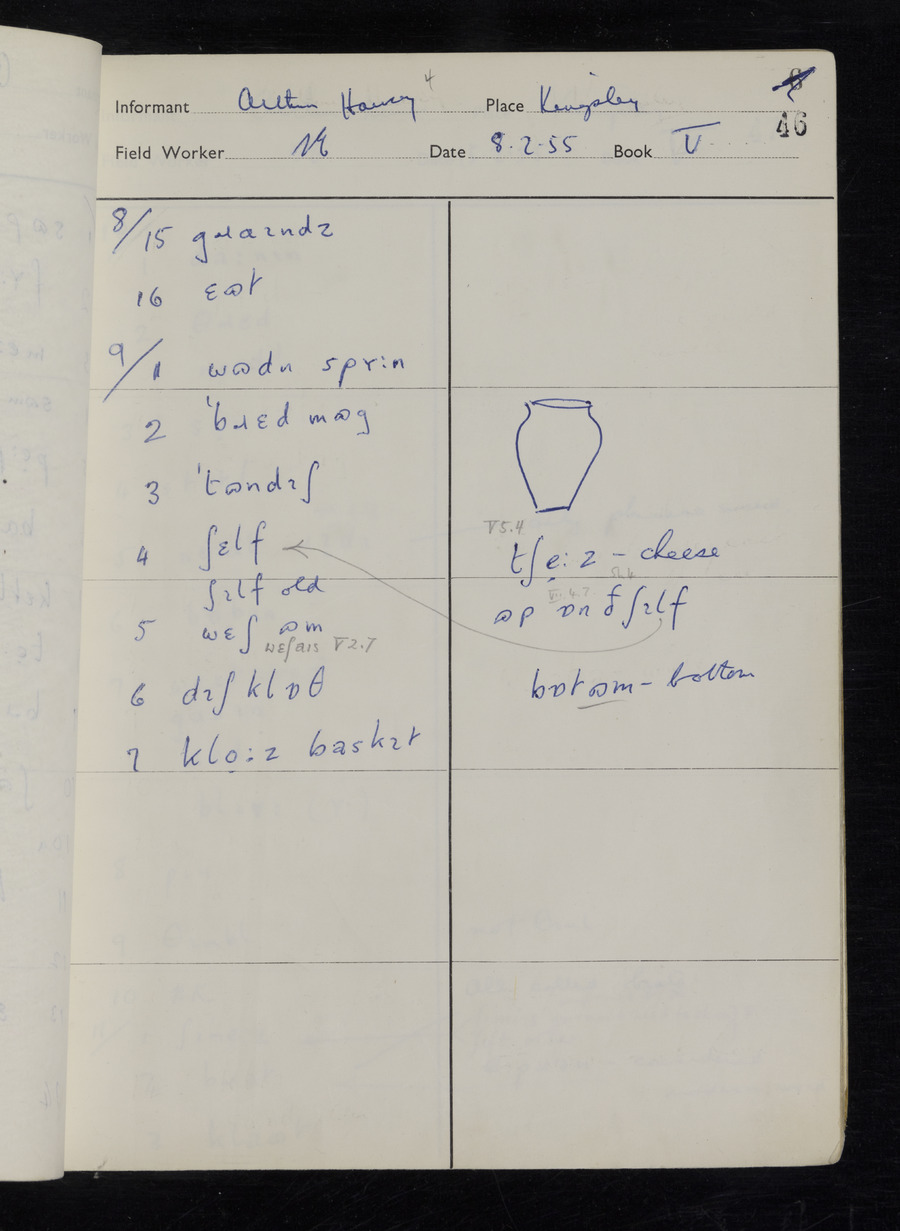 Informant Arthur Harvey 4 Place Kingsley
46
Field Worker Date 8.2.55 Book V
8/15 gɹaɪndz
16 ɛət
9/1 wɷdn sprɪn
2 ˈbɹɛd mɷg
3 ˈtɷndɪʃ
4 ʃɛlf
ʃɪlf old
5 wɛʃ ɷm
wɛʃaɪs V 2.7
6 dɪʃ klɒθ
7 klo̤:z baskɪt
V 5.4
tʃẹ: z – cheese
Sh.4
VI. 4.7
ɷp ɒn ð ʃɪlf
bɒtɷm – bottom